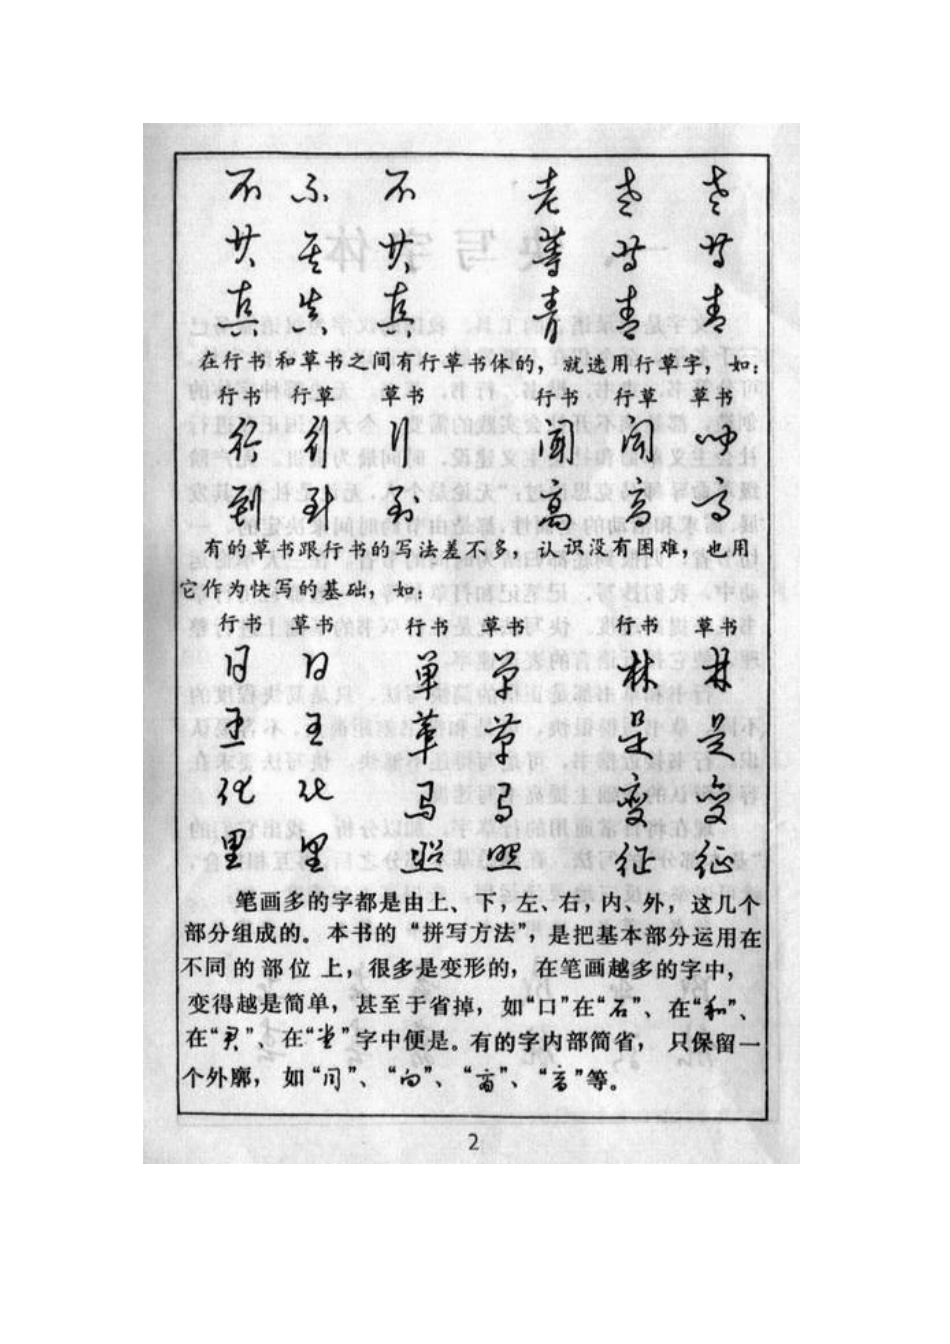 不 不 不 老 老 老
共 共 共 等 等 等
真 真 真 青 青 青
在行书和草书之间有行草书体的，就选用行草字，如：
行书 行草 草书 行书 行草 草书
行 行 行 闻 闻 闻
到 到 到 高 高 高
有的草书跟行书的写法差不多，认识没有困难，也用
它作为快写的基础，如：
行书 草书 行书 草书 行书 草书
日 日 单 单 林 林
王 王 草 草 是 是
化 化 马 马 变 变
里 里 照 照 征 征
笔画多的字都是由上、下，左、右，内、外，这几个
部分组成的。本书的“拼写方法”，是把基本部分运用在
不同的部位上，很多是变形的，在笔画越多的字中，
变得越是简单，甚至于省掉，如“口”在“石”、在“和”、
在“君”、在“堂”字中便是。有的字内部简省，只保留一
个外廓，如“问”、“向”、“”、“”等。
2